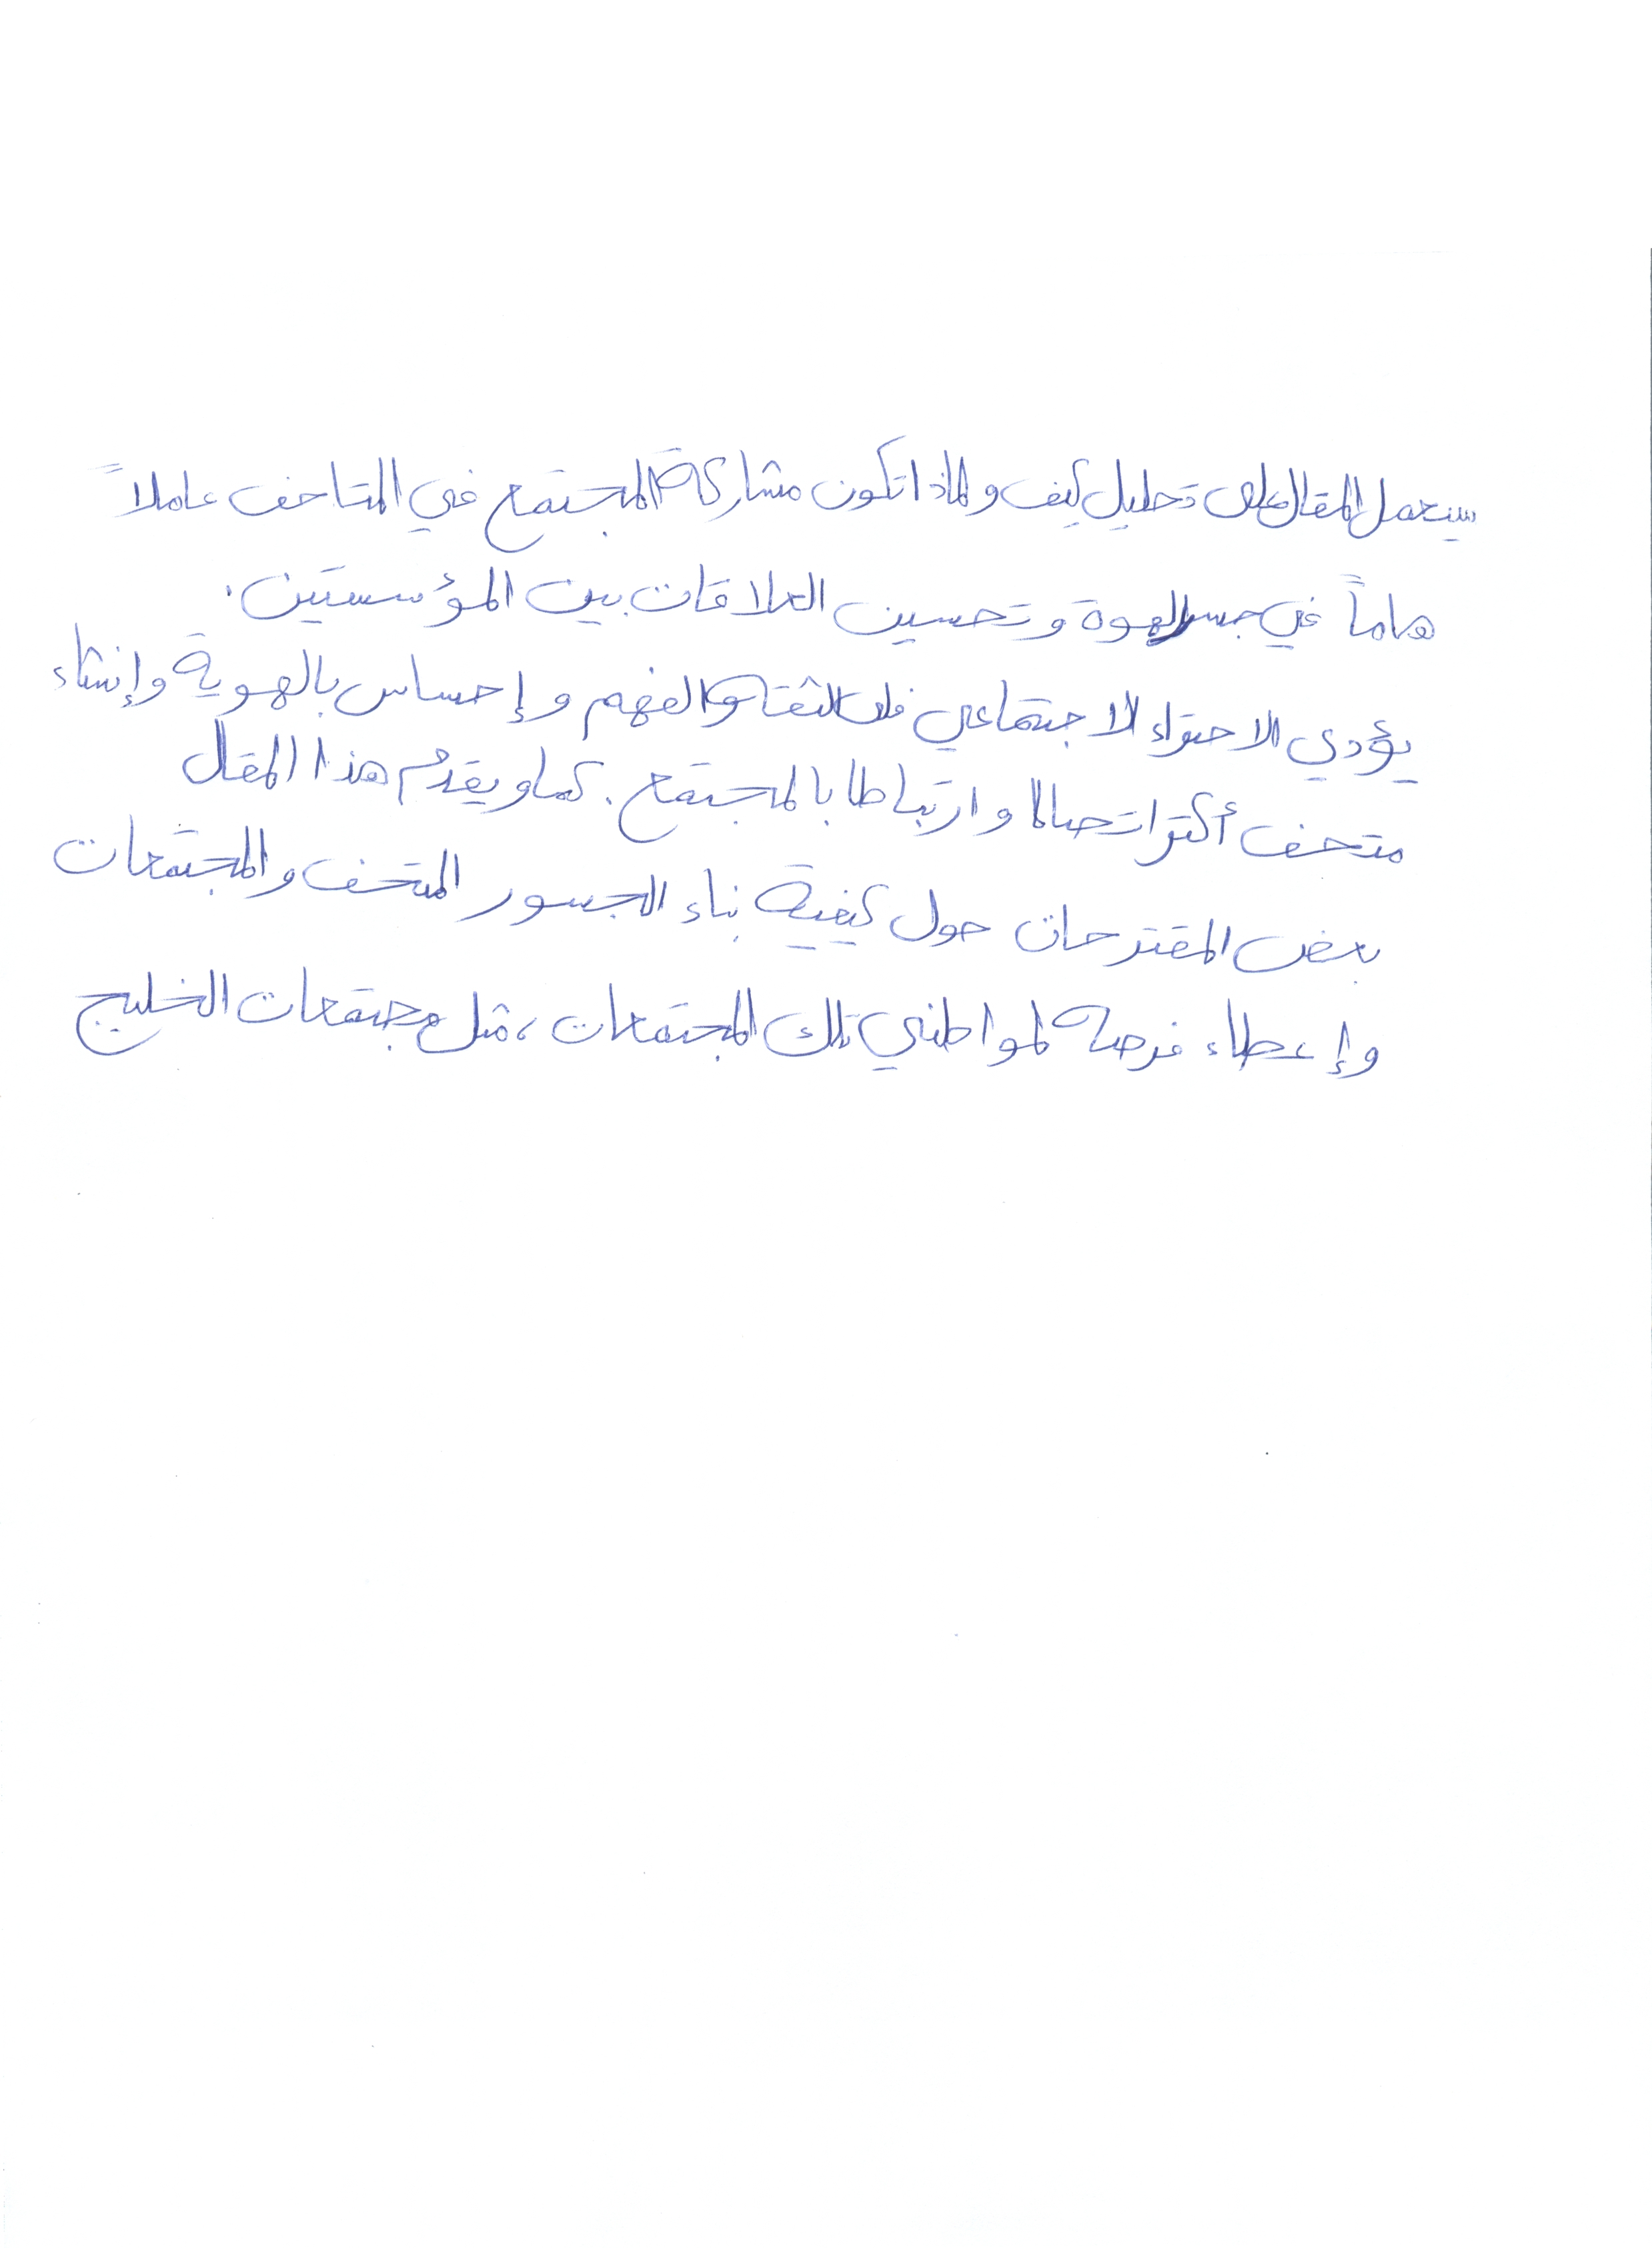 سيعمل المقال على تحليل كيف ولماذا تكون مشاركة المجتمع في المتاحف عاملاً
هاماً في جسر الهوة وتحسين العلاقات بين المؤسستين.
يؤدي الاحتواء الاجتماعي الثقة والفهم وإحساس بالهوية وإنشاء
متحف أكثر اتصالا وارتباطا بالمجتمع. كما ويقدم هذا المقال
بعض المقترحات حول كيفية بناء الجسور المتحف والمجتمعات
وإعطاء فرصة لمواطني تلك المجتمعات، مثل مجتمعات الخليج